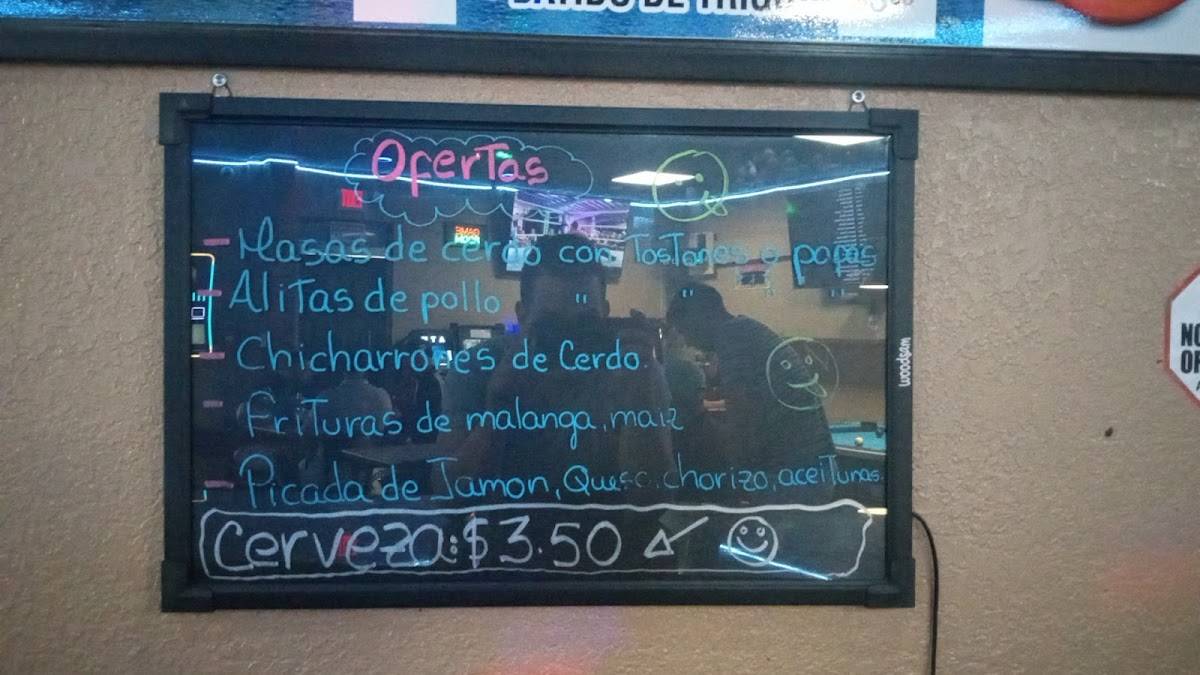 Ofertas
- Masas de cerdo con Tostones o papas
- Alitas de pollo " " " "
- Chicharrones de Cerdo.
- Frituras de malanga, maiz
- Picada de Jamon, Queso, chorizo, aceitunas
Cerveza: $3.50
woodsam
NO